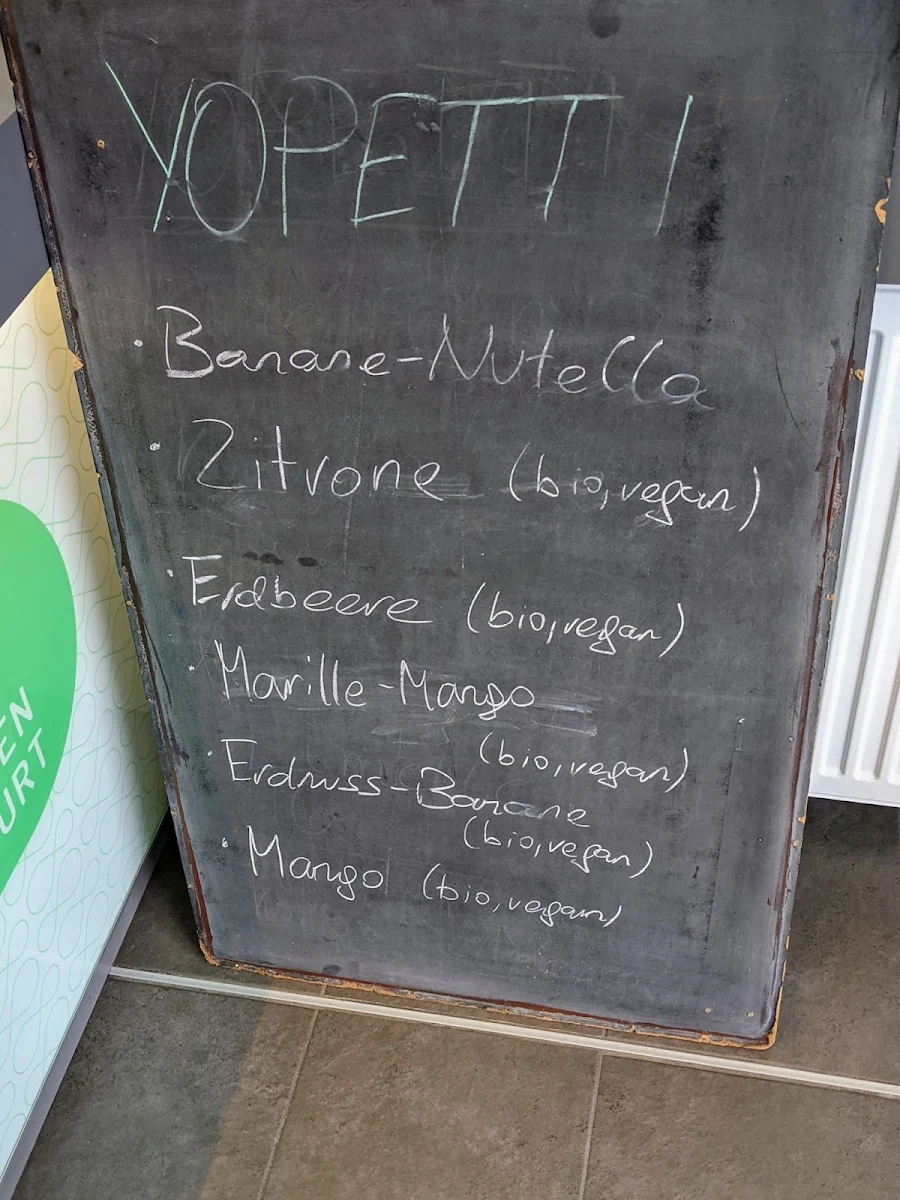 YOPETTI
· Banane-Nutella
· Zitrone (bio, vegan)
· Erdbeere (bio, vegan)
· Marille-Mango
(bio, vegan)
· Erdnuss-Banane
(bio, vegan)
· Mango (bio, vegan)
EN
URT